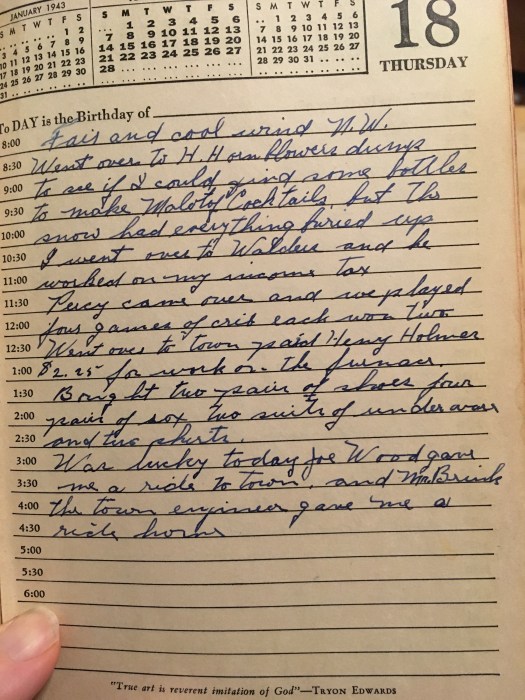 JANUARY 1943
S M T W T F S
1 2
3 4 5 6 7 8 9
10 11 12 13 14 15 16
17 18 19 20 21 22 23
24 25 26 27 28 29 30
31
S M T W T F S
1 2 3 4 5 6
7 8 9 10 11 12 13
14 15 16 17 18 19 20
21 22 23 24 25 26 27
28
S M T W T F S
1 2 3 4 5 6
7 8 9 10 11 12 13
14 15 16 17 18 19 20
21 22 23 24 25 26 27
28 29 30 31
18
THURSDAY
To DAY is the Birthday of
8:00 Fair and cool wind N.W.
8:30 Went over to H. Hornblowers dump
9:00 to see if I could find some bottles
9:30 to make Moloty Cocktails, but the
10:00 snow had everything buried up
10:30 I went over to Walders and he
11:00 worked on my income tax
11:30 Percy came over and we played
12:00 four games of crib each won two
12:30 Went over to town paid Henry Holmer
1:00 $2.25 for work on the furnace,
1:30 Bought two pair of shoes four
2:00 pair of sox two suits of underwear
2:30 and two shirts.
3:00 Was lucky today Joe Wood gave
3:30 me a ride to town, and Mr. Brink
4:00 the town engineer gave me a
4:30 ride home
5:00
5:30
6:00
"True art is reverent imitation of God"—TRYON EDWARDS